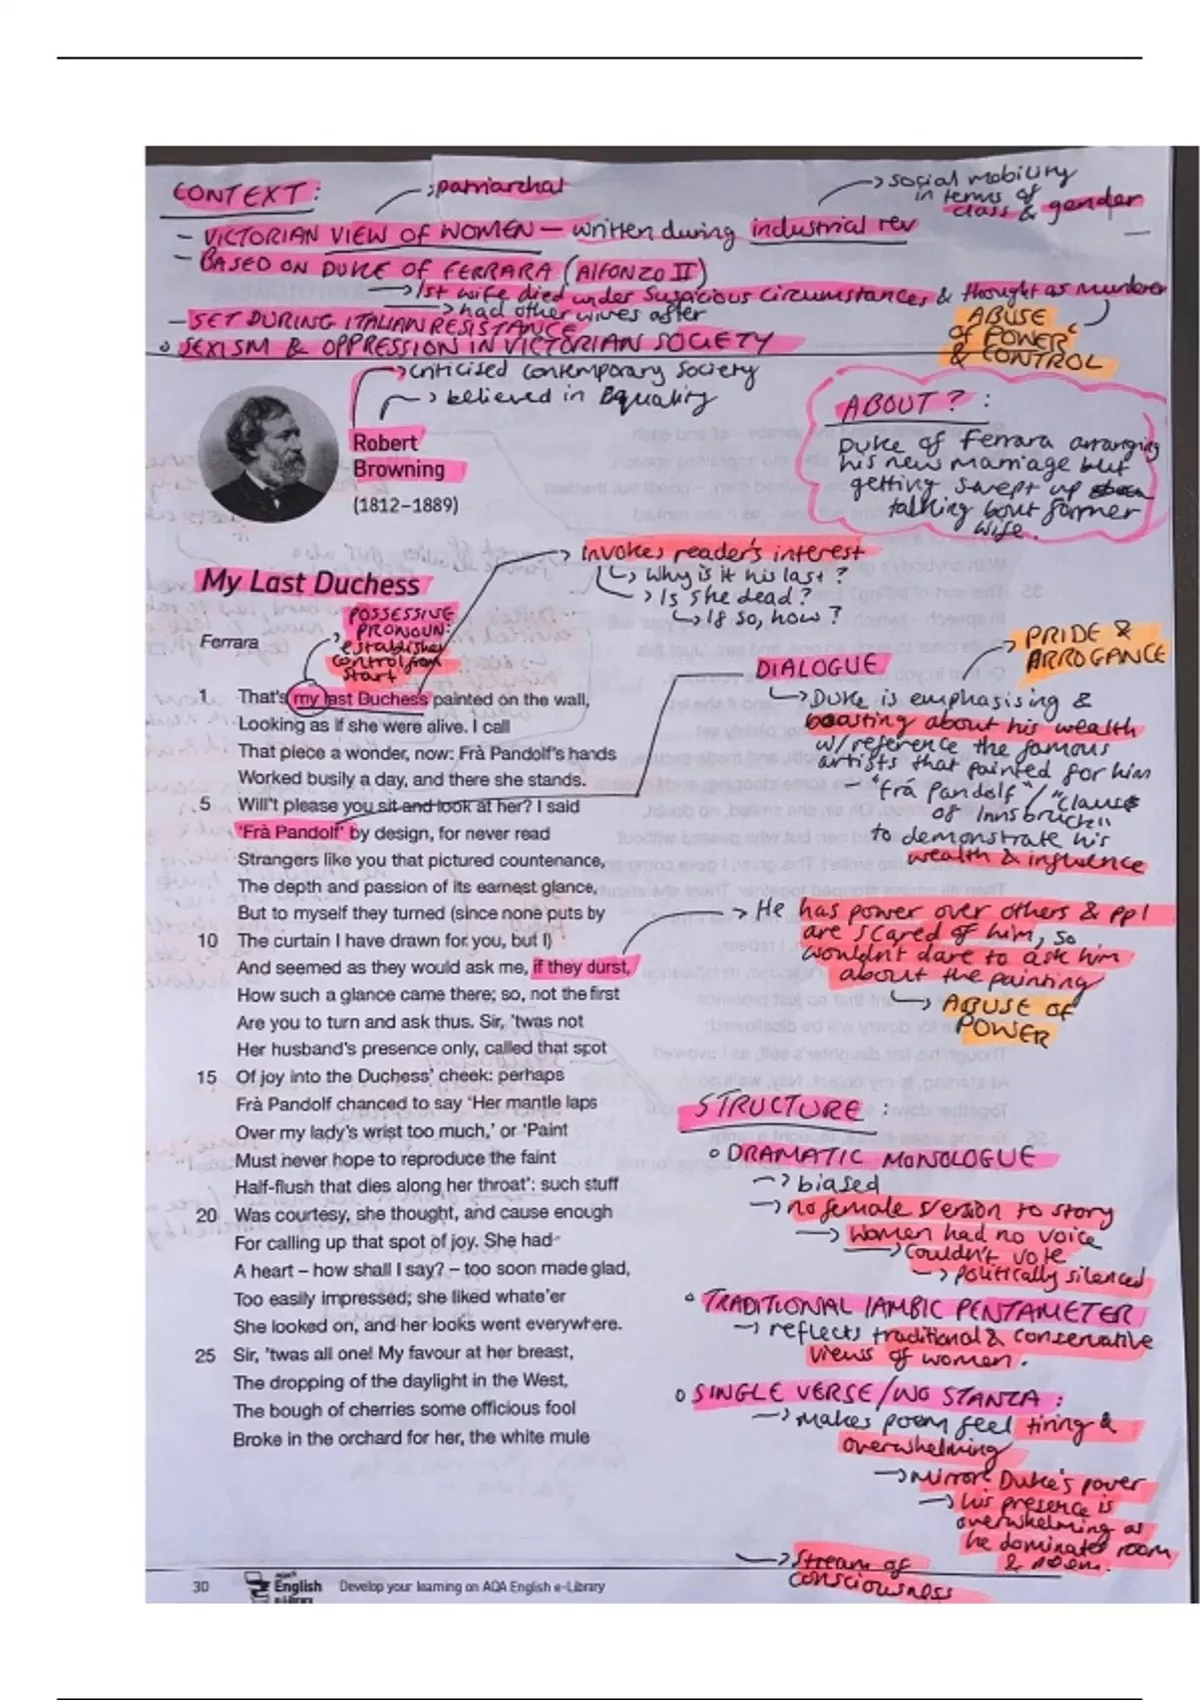 CONTEXT:
→ patriarchal
→ social mobility
in terms of
class & gender
- VICTORIAN VIEW OF WOMEN — written during industrial rev
- BASED ON DUKE OF FERRARA (Alfonzo II)
→ 1st wife died under suspicious circumstances & thought as murderer
→ had other wives after
- SET DURING ITALIAN RESISTANCE
ABUSE
OF POWER
& CONTROL
◦ SEXISM & OPPRESSION IN VICTORIAN SOCIETY
→ criticised contemporary society
→ believed in Equality
Robert
Browning
(1812–1889)
ABOUT? :
Duke of Ferrara arranging
his new marriage but
getting swept up
talking bout former
wife.
→ Invokes reader's interest
↳ Why is it his last?
→ Is she dead?
↳ If so, how?
My Last Duchess
Ferrara
POSSESSIVE
PRONOUN:
establishes
control from
start
1 That's my last Duchess painted on the wall,
Looking as if she were alive. I call
That piece a wonder, now: Frà Pandolf's hands
Worked busily a day, and there she stands.
5 Will't please you sit and look at her? I said
'Frà Pandolf' by design, for never read
Strangers like you that pictured countenance,
The depth and passion of its earnest glance,
But to myself they turned (since none puts by
10 The curtain I have drawn for you, but I)
And seemed as they would ask me, if they durst,
How such a glance came there; so, not the first
Are you to turn and ask thus. Sir, 'twas not
Her husband's presence only, called that spot
15 Of joy into the Duchess' cheek: perhaps
Frà Pandolf chanced to say 'Her mantle laps
Over my lady's wrist too much,' or 'Paint
Must never hope to reproduce the faint
Half-flush that dies along her throat': such stuff
20 Was courtesy, she thought, and cause enough
For calling up that spot of joy. She had
A heart – how shall I say? – too soon made glad,
Too easily impressed; she liked whate'er
She looked on, and her looks went everywhere.
25 Sir, 'twas all one! My favour at her breast,
The dropping of the daylight in the West,
The bough of cherries some officious fool
Broke in the orchard for her, the white mule
DIALOGUE
→ PRIDE &
ARROGANCE
↳ Duke is emphasising &
boasting about his wealth
w/reference the famous
artists that painted for him
- "frá Pandolf"/"Claus
of Innsbruck"
to demonstrate his
wealth & influence
→ He has power over others & ppl
are scared of him, so
wouldn't dare to ask him
about the painting
↳ ABUSE OF
POWER
STRUCTURE :
◦ DRAMATIC MONOLOGUE
→ biased
→ no female version to story
→ women had no voice
→ couldn't vote
→ politically silenced
◦ TRADITIONAL IAMBIC PENTAMETER
→ reflects traditional & conservative
views of women.
◦ SINGLE VERSE/NO STANZA :
→ makes poem feel tiring &
overwhelming
→ mirrors Duke's power
→ his presence is
overwhelming as
he dominates room
& poem.
→ Stream of
consciousness
30 English Develop your learning on AQA English e-Library
e-Library